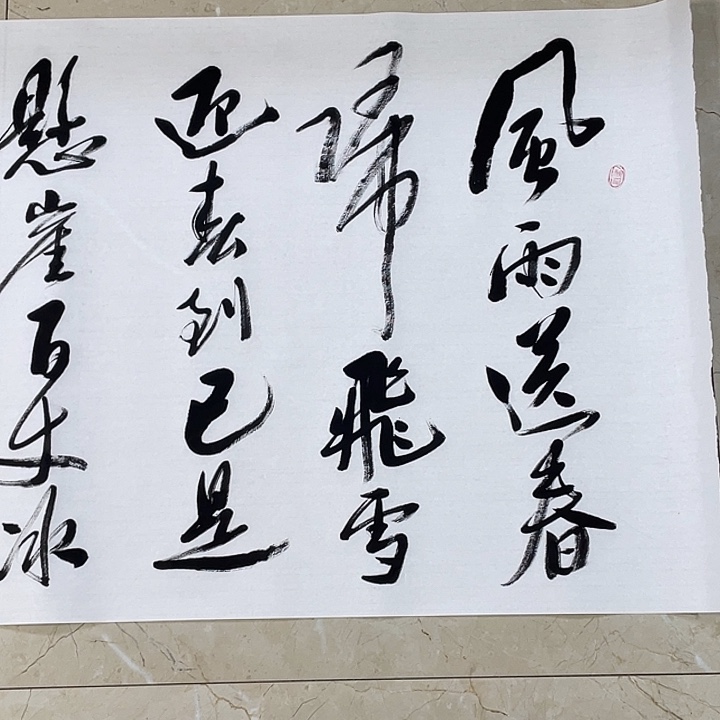 風雨送春
歸飛雪
迎春到已是
懸崖百丈冰